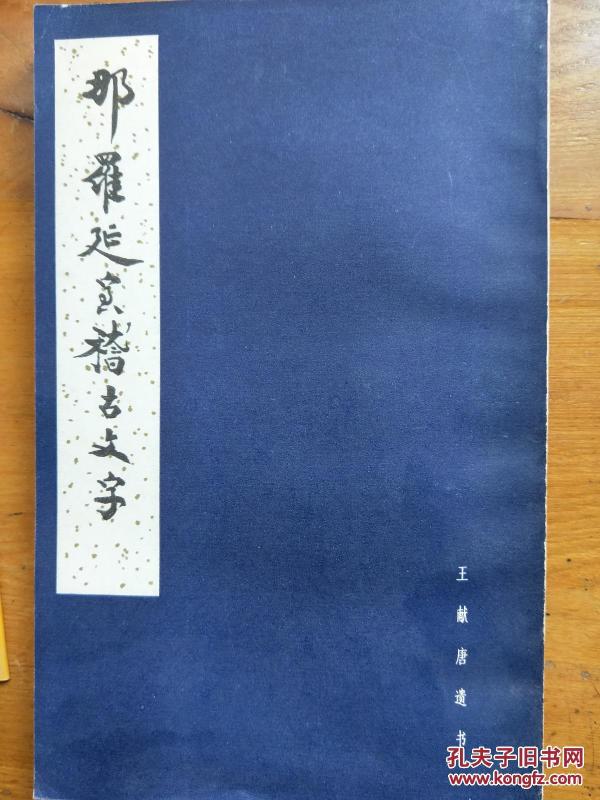 那羅延室稽古文字
王献唐遗书
孔夫子旧书网
www.kongfz.com